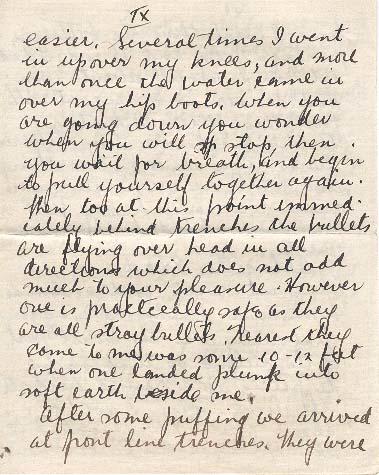 IX
easier. Several times I went
in up over my knees, and more
than once the water came in
over my hip boots. When you
are going down you wonder
when you will stop, then
you wait for breath, and begin
to pull yourself together again.
Then too at this point immed-
iately behind trenches the bullets
are flying over head in all
directions which does not add
much to your pleasure. However
one is practically safe as they
are all stray bullets. Nearest they
come to me was some 10-12 feet
when one landed plunk into
soft earth beside me.
After some puffing we arrived
at front line trenches. They were